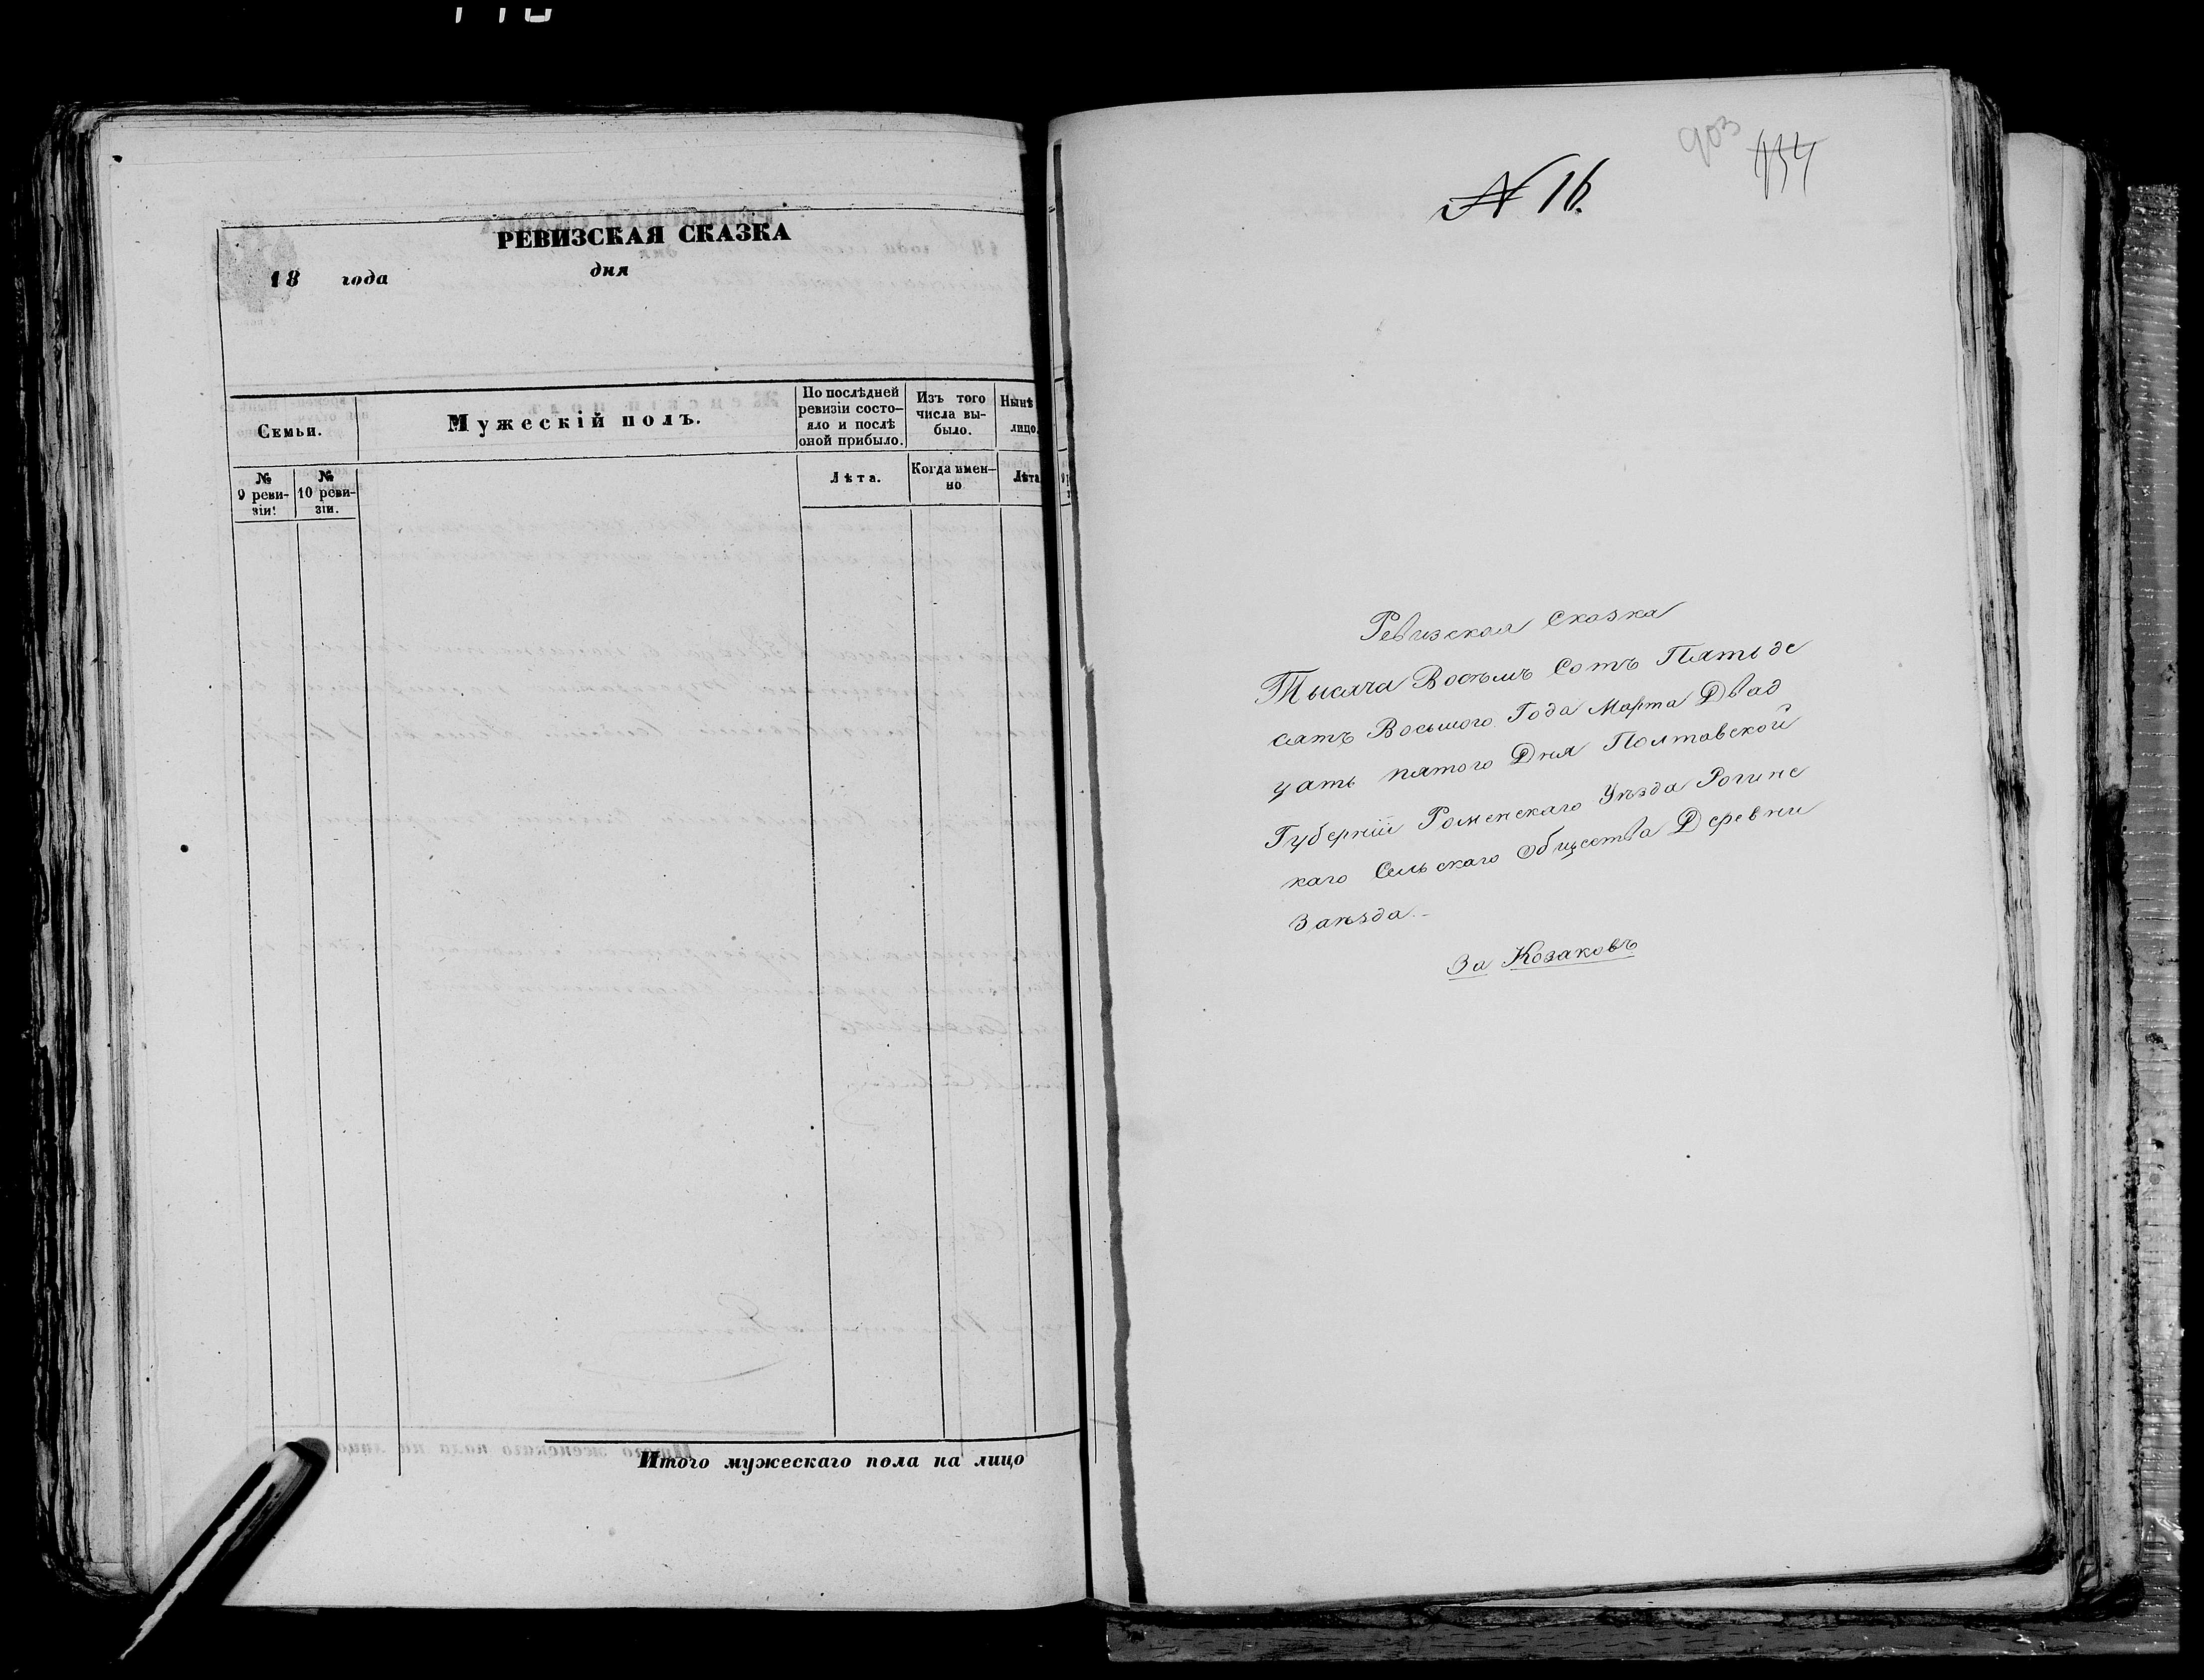 РЕВИЗСКАЯ СКАЗКА
18 года дня
Семьи.
Мужескій полъ.
По послѣдней
ревизіи состо-
яло и послѣ
оной прибыло.
Изъ того
числа вы-
было.
Нынѣ
лицо
№
9 реви-
зіи.
№
10 реви-
зіи.
Лѣта.
Когда имен-
но
Лѣта
Итого мужескаго пола на лицо
903
934
№ 16.
Ревизская сказка
Тысяча Восѣмъ Сотъ Пятьде
сятъ Восьмого Года Марта Двад
цать пятого Дня Полтавской
Губерніи Роменскаго Уѣзда Рогинс
каго Сельскаго Общества Деревни
Заѣзда.-
За Козаковъ